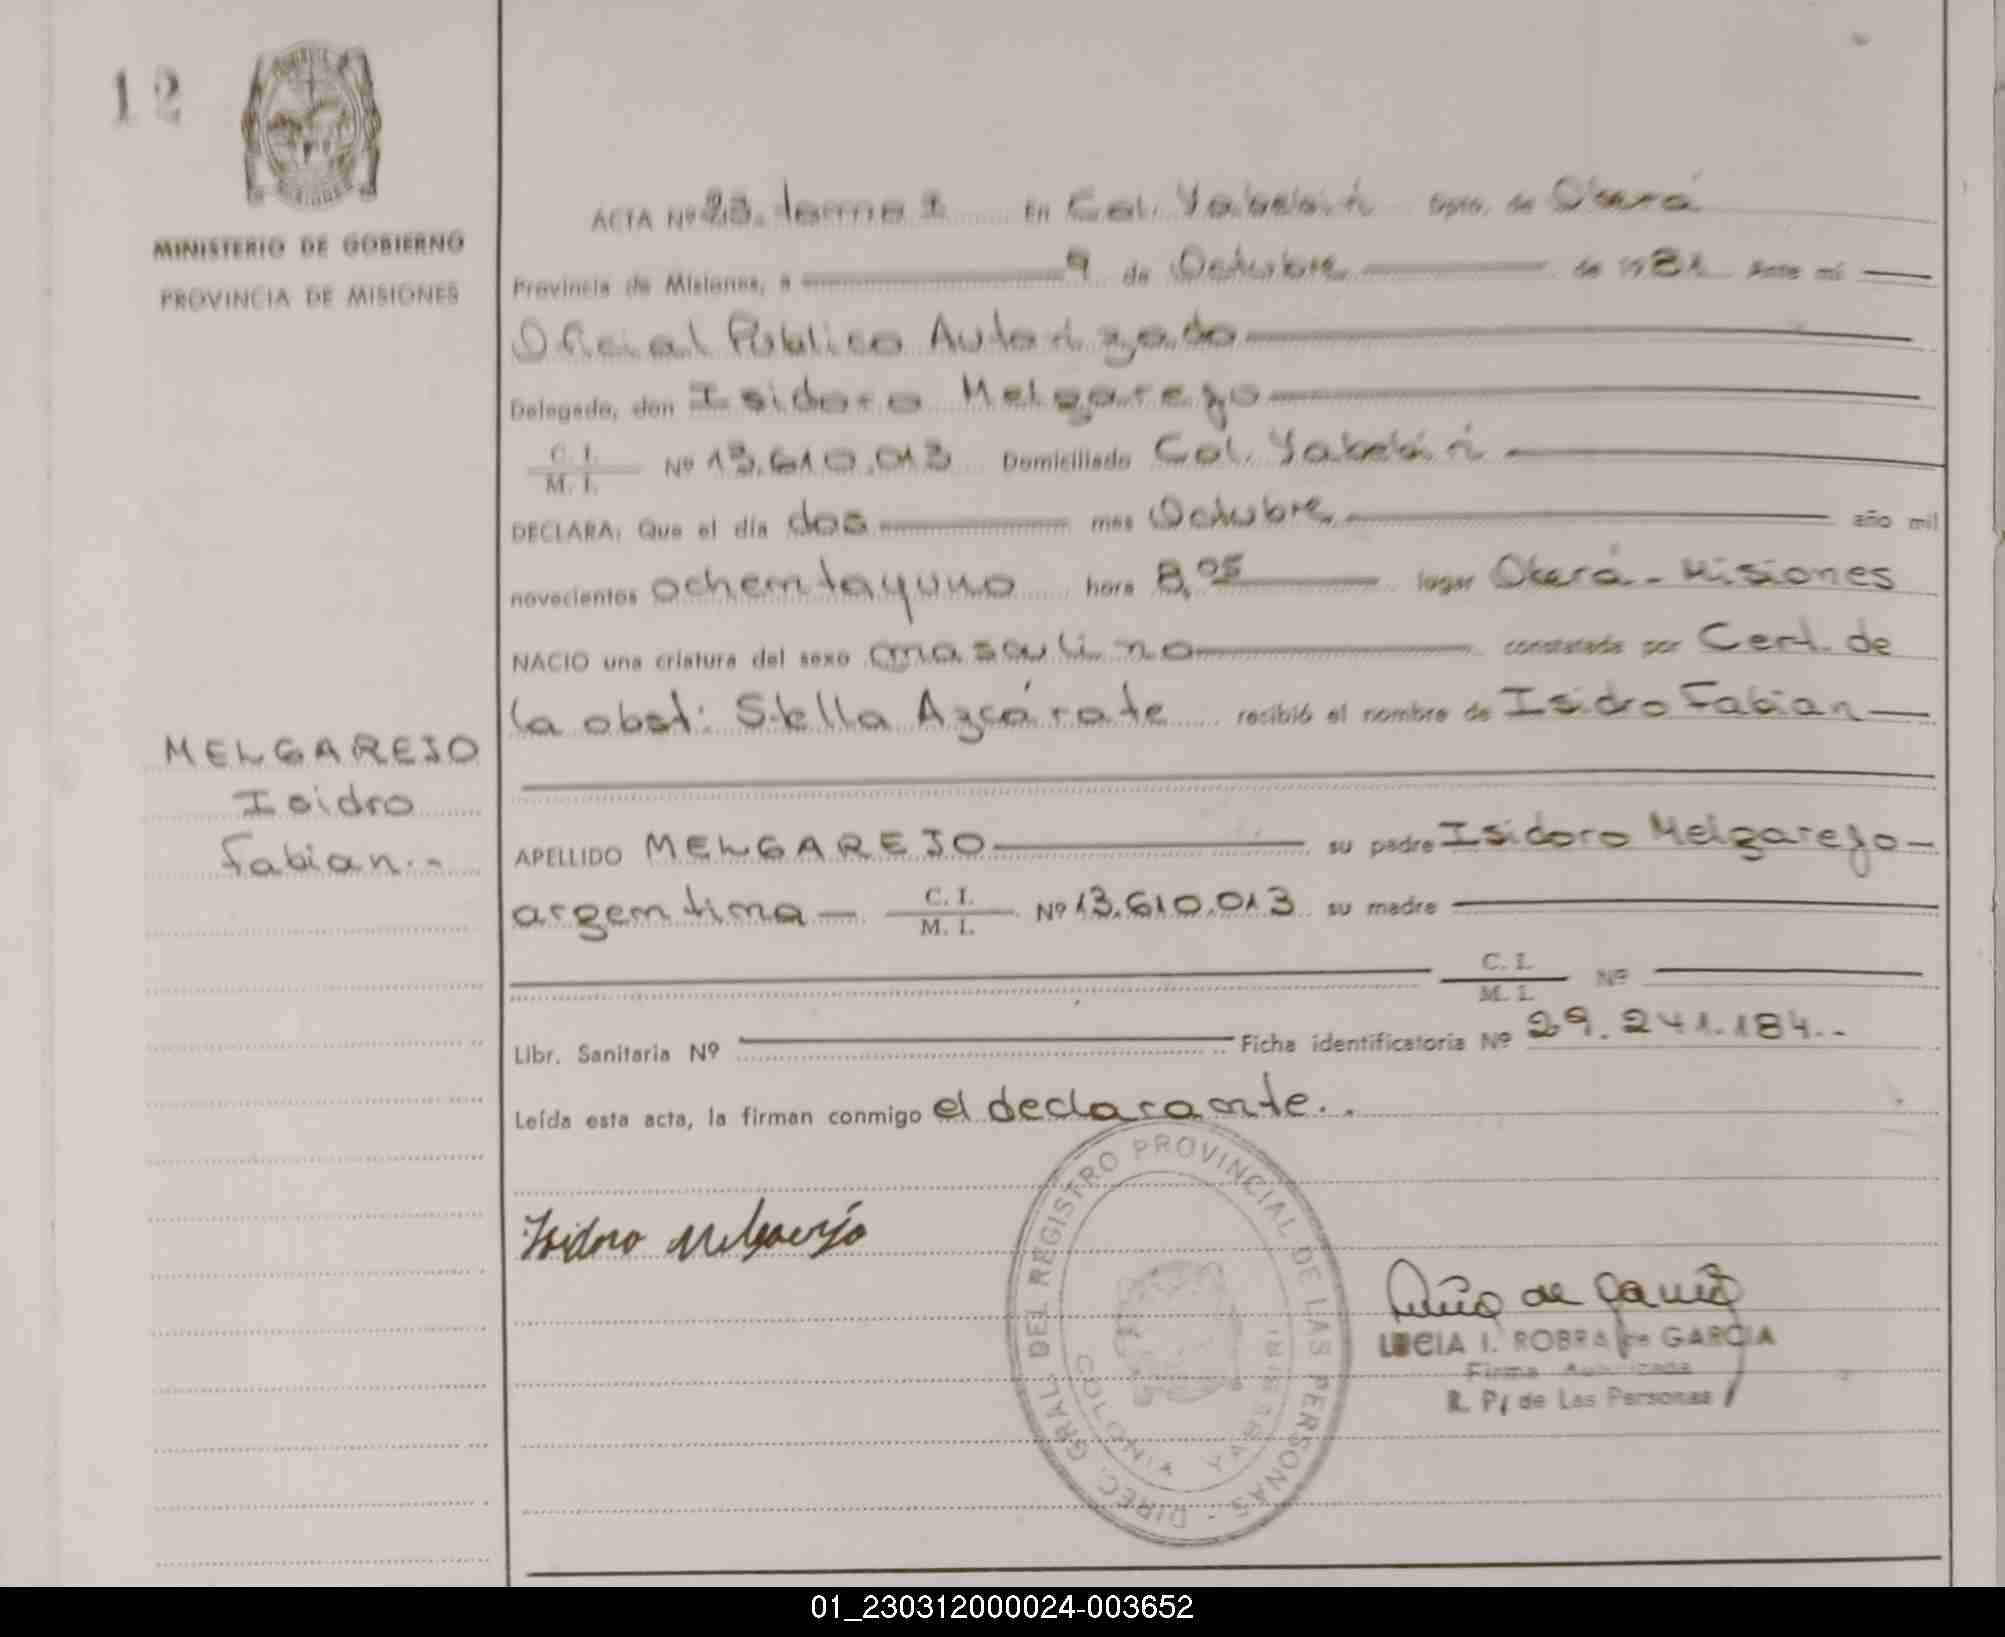 12
MINISTERIO DE GOBIERNO
PROVINCIA DE MISIONES
ACTA Nº 23. tomo I En Col. Yabebiri Dpto. de Oberá
Provincia de Misiones, a 9 de Octubre de 1981 Ante mí
Oficial Público Autorizado
Delegado, don Isidoro Melgarejo
C. I.
M. I. Nº 13.610.013 Domiciliado Col. Yabebiri
DECLARA: Que el día dos mes Octubre año mil
novecientos ochentayuno hora 8,05 lugar Oberá - Misiones
NACIO una criatura del sexo masculino constatada por Cert. de
la obst: Stella Azcárate recibió el nombre de Isidro Fabian
MELGAREJO
Isidro
Fabian.-
APELLIDO MELGAREJO su padre Isidoro Melgarejo-
argentina C. I.
M. I. Nº 13.610.013 su madre
C. I.
M. I. Nº
Libr. Sanitaria Nº Ficha identificatoria Nº 29.241.184.-
Leída esta acta, la firman conmigo el declarante..
Isidoro Melgarejo
DIREC. GRAL. DEL REGISTRO PROVINCIAL DE LAS PERSONAS
COLONIA YABEBIRI
LUCIA I. ROBRA de GARCIA
Firma Autorizada
R. P. de Las Personas
01_230312000024-003652